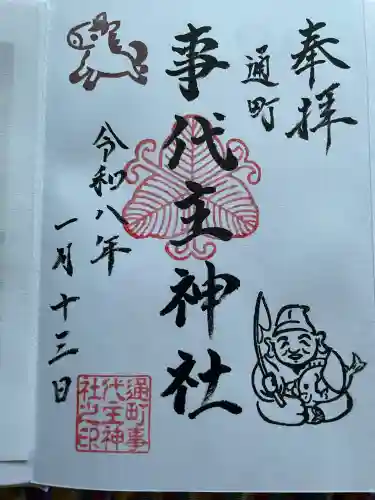 奉拝
通町
事代主神社
令和八年
一月十三日
通町事
代主神
社之印